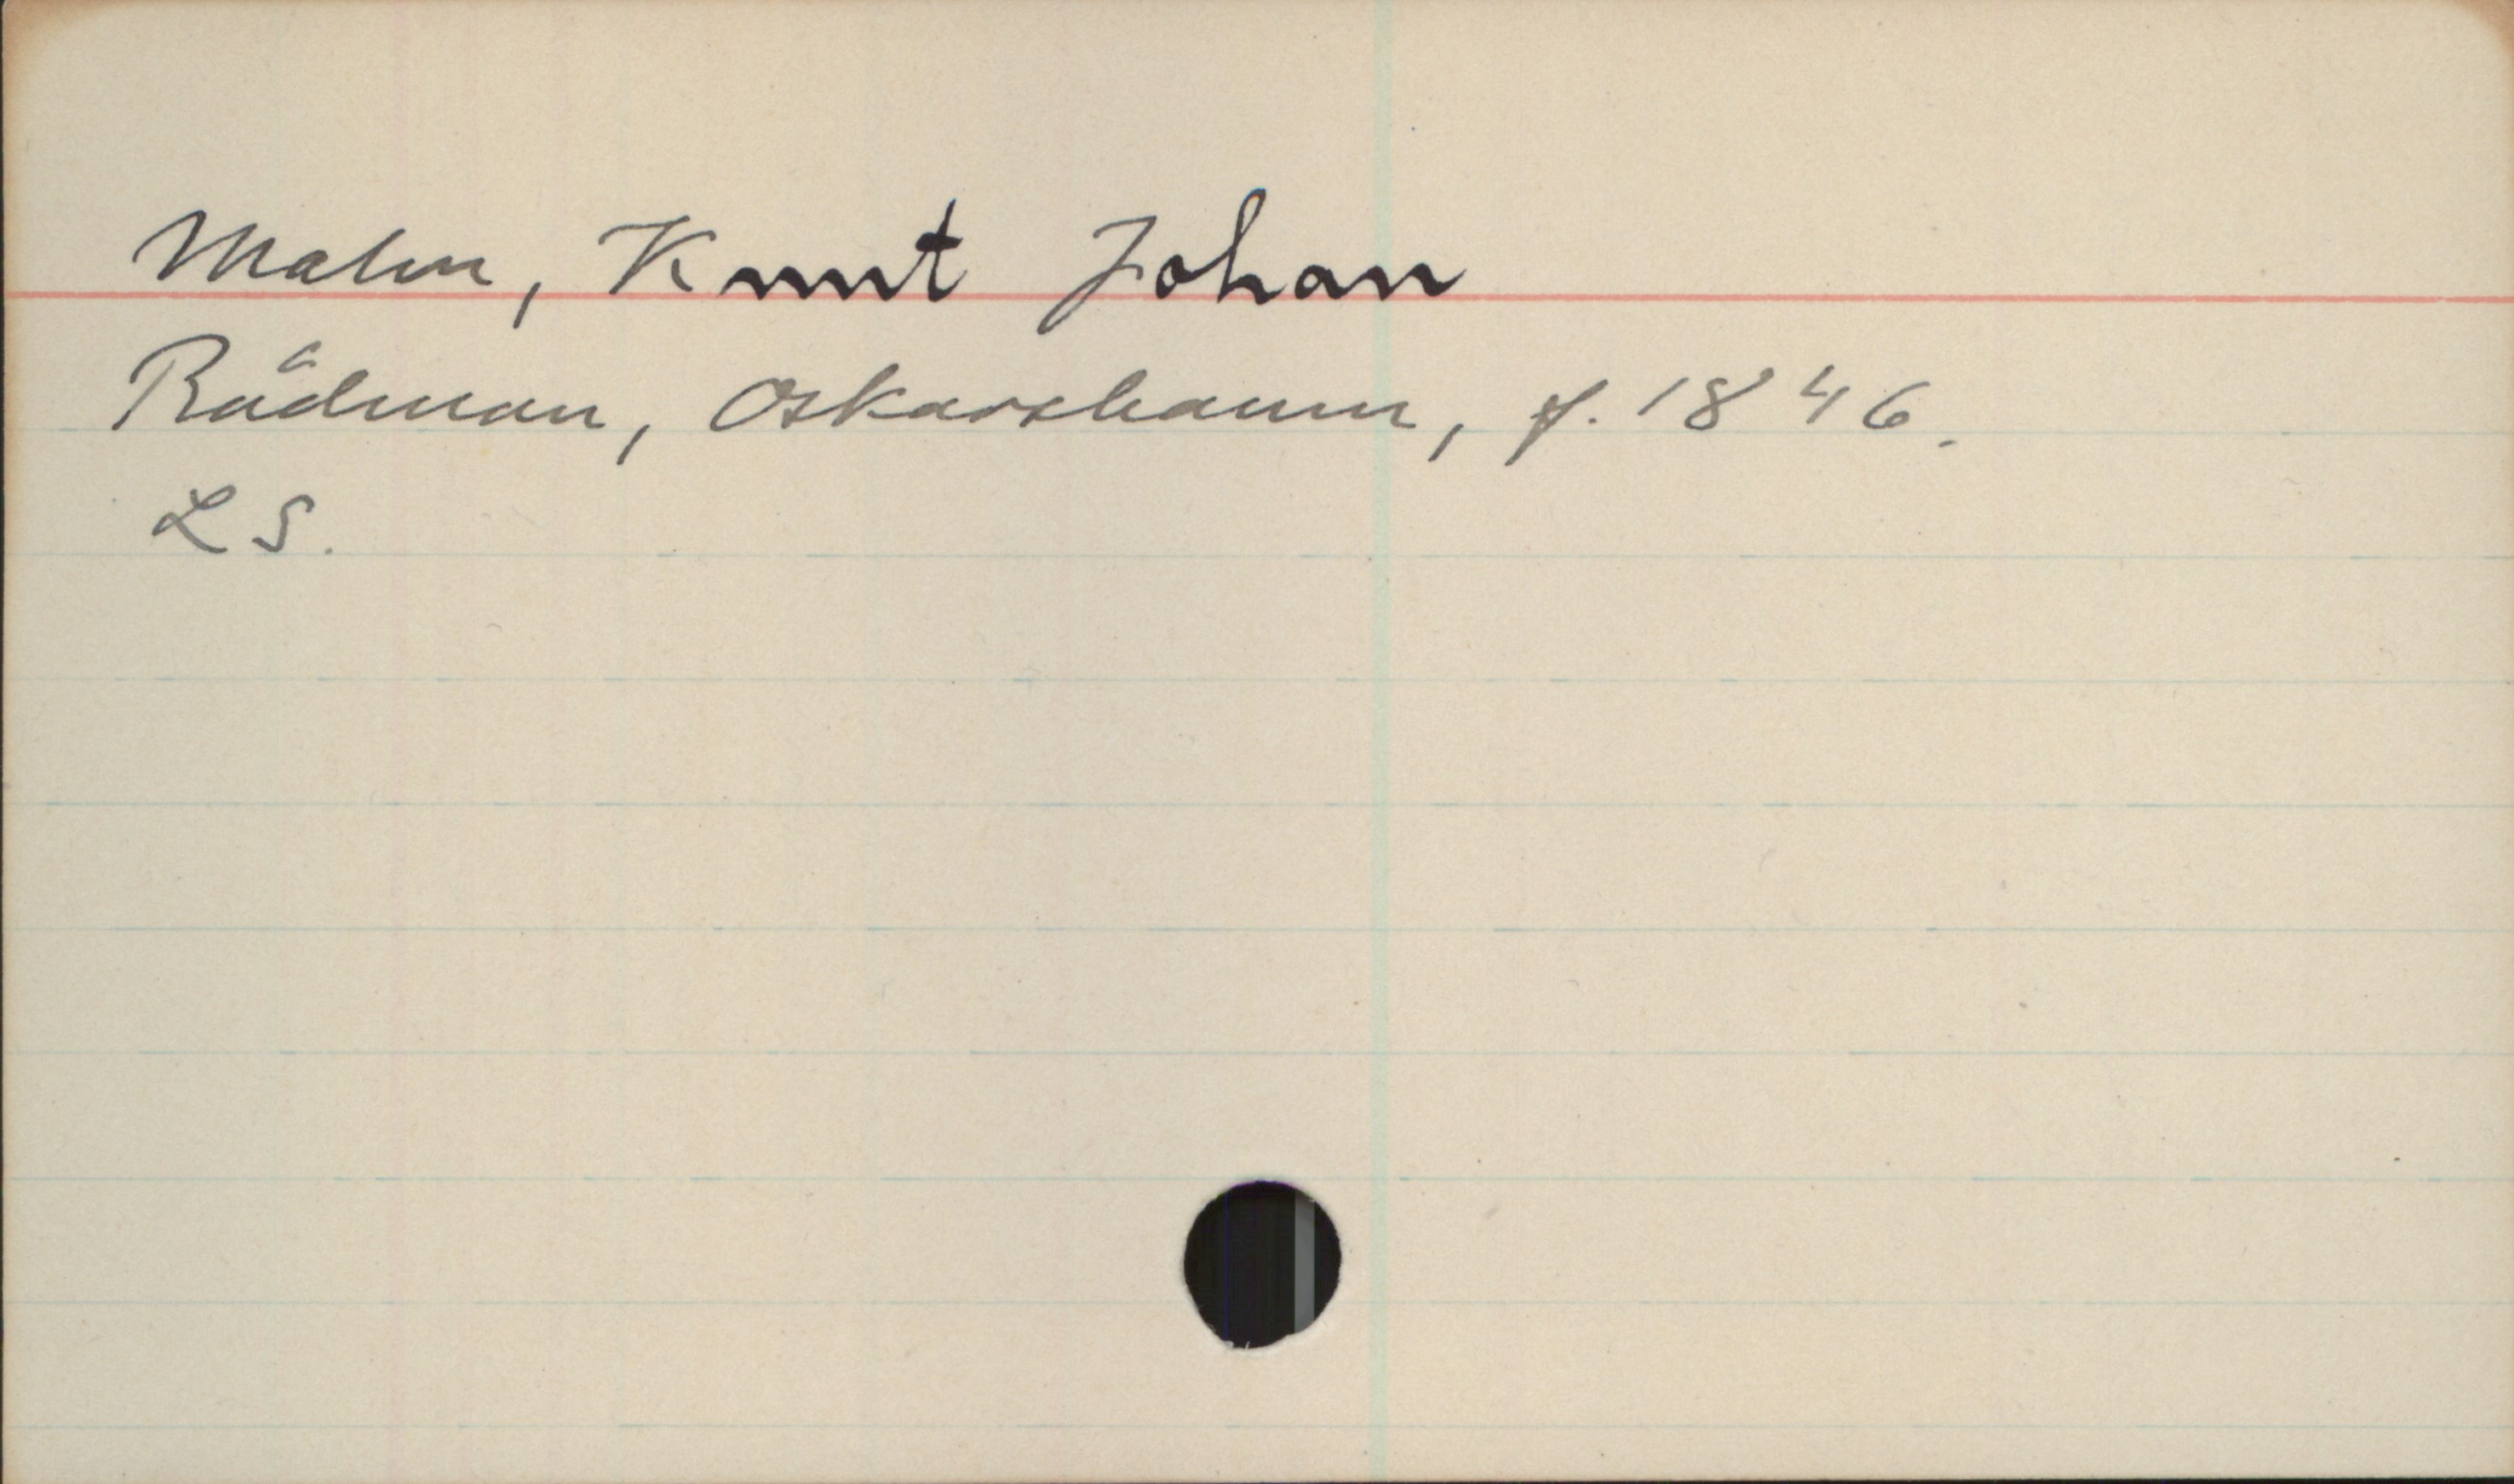 Malm, Knut Johan
Rådman, Oskarshamn, f. 1846.
LS.